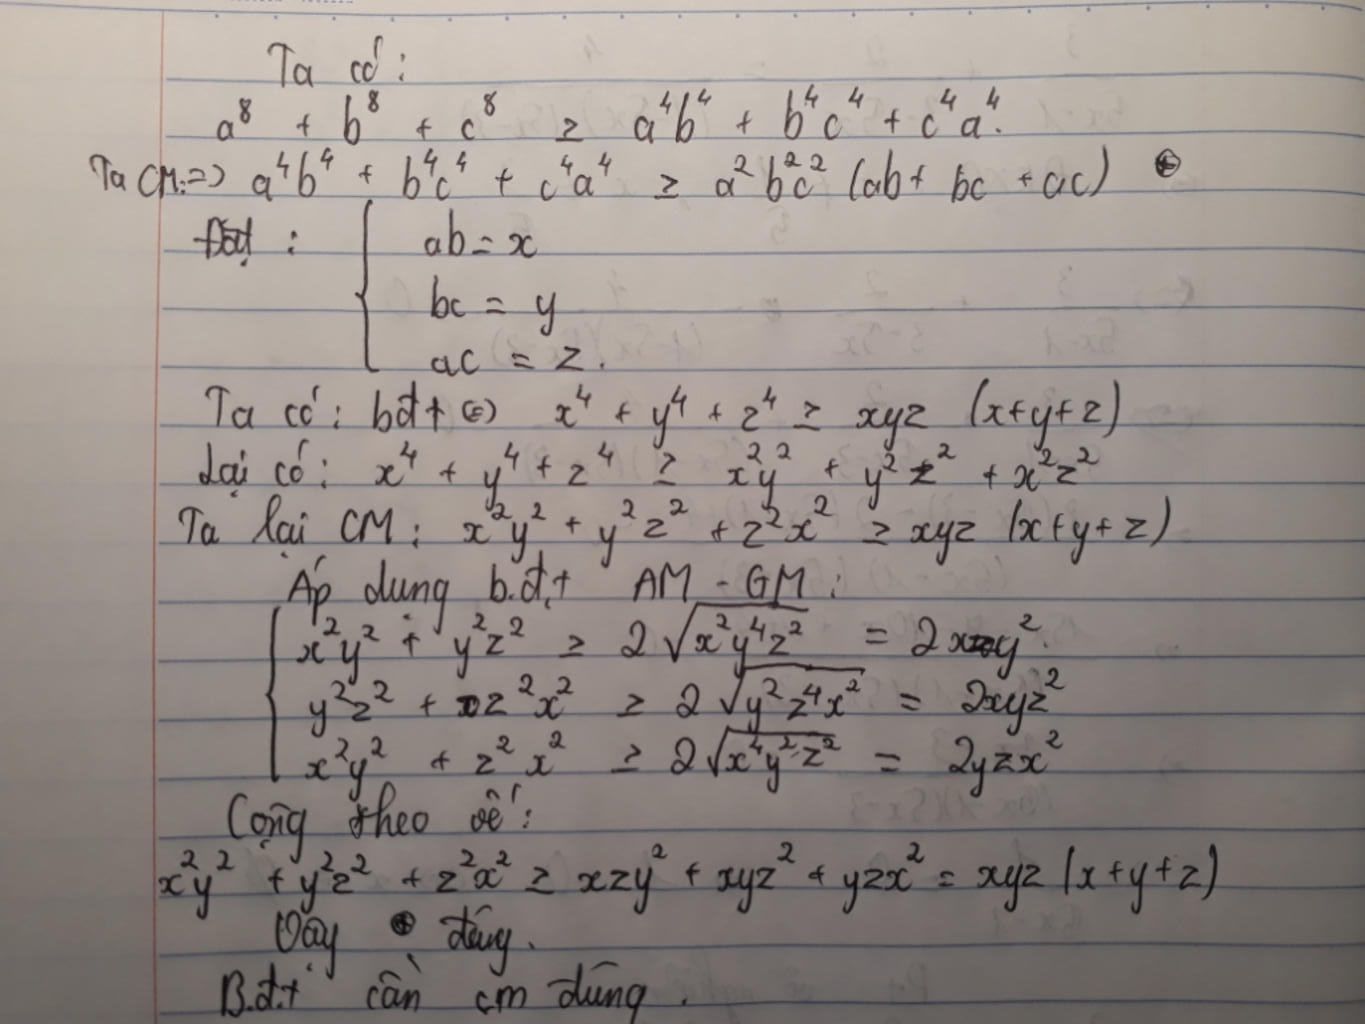 Ta có:
a⁸ + b⁸ + c⁸ ≥ a⁴b⁴ + b⁴c⁴ + c⁴a⁴.
Ta CM: => a⁴b⁴ + b⁴c⁴ + c⁴a⁴ ≥ a²b²c² (ab + bc + ac)
Đặt : { ab = x
bc = y
ac = z.
Ta có: bđt (=) x⁴ + y⁴ + z⁴ ≥ xyz (x+y+z)
Lại có: x⁴ + y⁴ + z⁴ ≥ x²y² + y²z² + x²z²
Ta lại CM: x²y² + y²z² + z²x² ≥ xyz (x+y+z)
Áp dụng b.đ.t AM - GM:
{ x²y² + y²z² ≥ 2√x²y⁴z² = 2xzy².
y²z² + z²x² ≥ 2√y²z⁴x² = 2xyz²
x²y² + z²x² ≥ 2√x⁴y²z² = 2yzx²
Cộng theo vế:
x²y² + y²z² + z²x² ≥ xzy² + xyz² + yzx² = xyz (x+y+z)
Vậy đúng.
B.đ.t cần cm đúng.